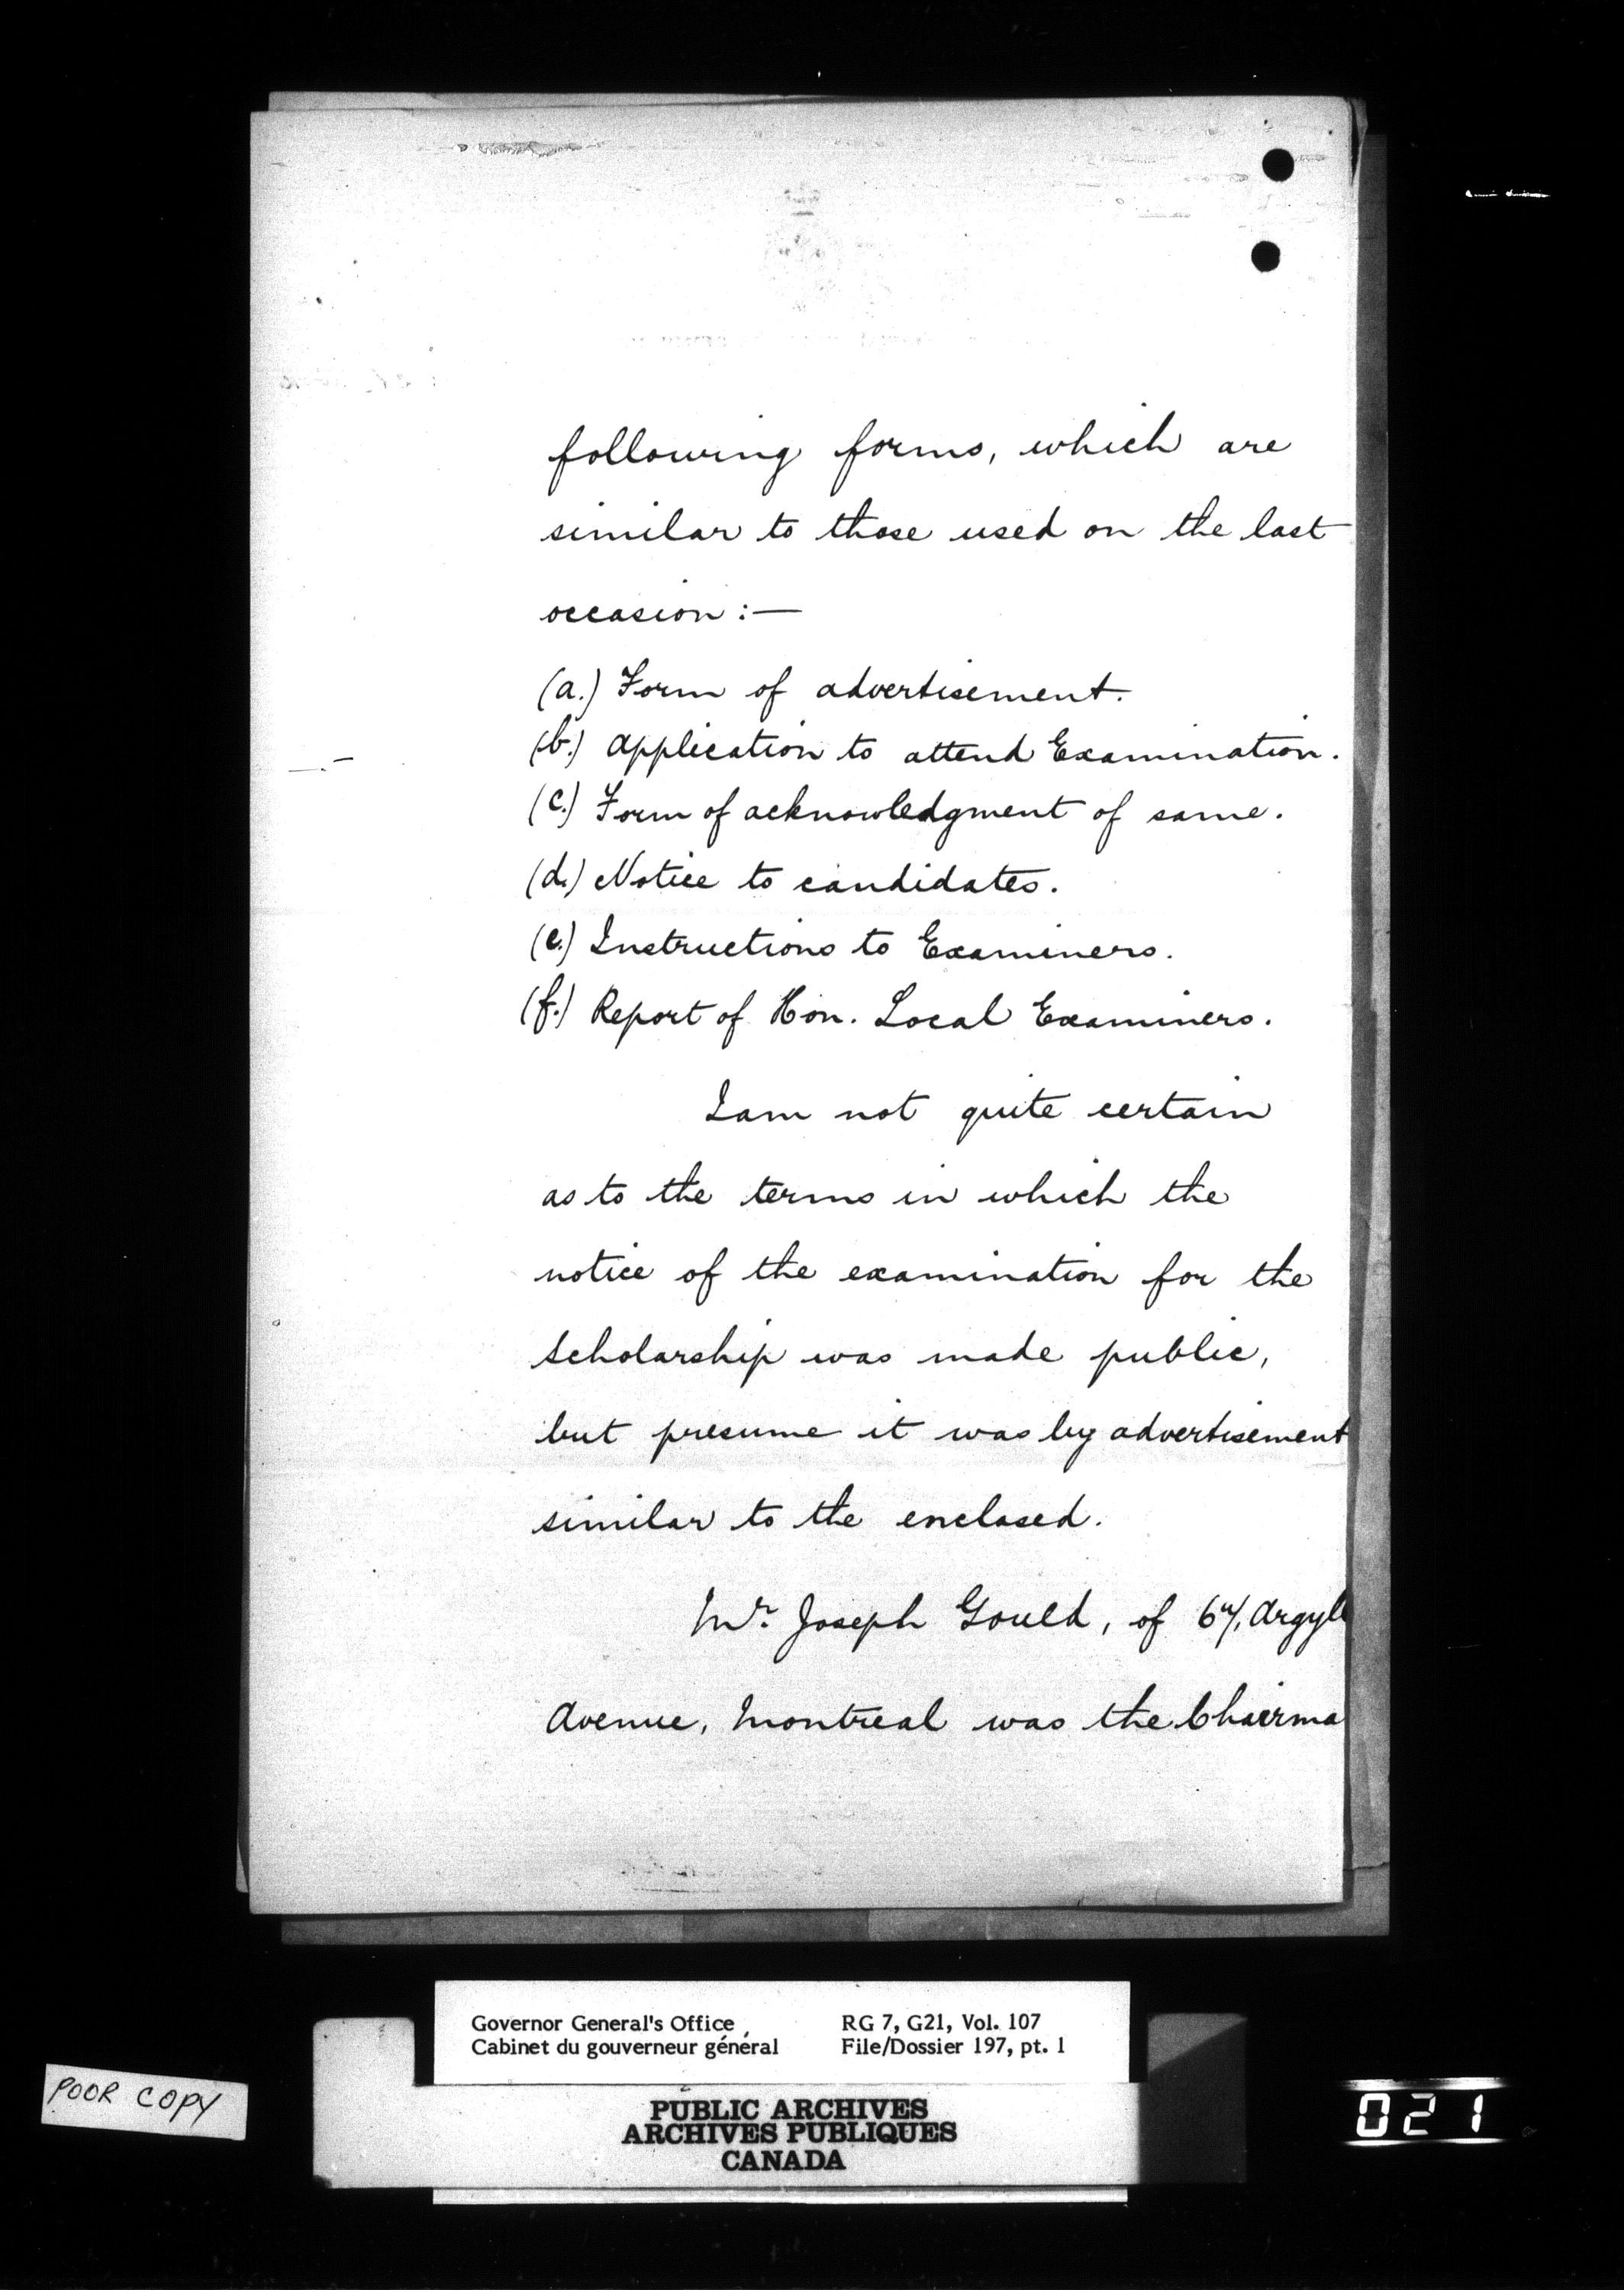 following forms, which are
similar to those used on the last
occasion :—
(a.) Form of advertisement.
(b.) Application to attend Examination.
(c.) Form of acknowledgment of same.
(d.) Notice to candidates.
(e.) Instructions to Examiners.
(f.) Report of Hon. Local Examiners.
I am not quite certain
as to the terms in which the
notice of the examination for the
Scholarship was made public,
but presume it was by advertisement
similar to the enclosed.
Mr. Joseph Gould, of Argyle
Avenue, Montreal was the Chairma
Governor General's Office
Cabinet du gouverneur général
RG 7, G21, Vol. 107
File/Dossier 197, pt. 1
PUBLIC ARCHIVES
ARCHIVES PUBLIQUES
CANADA
POOR COPY
021